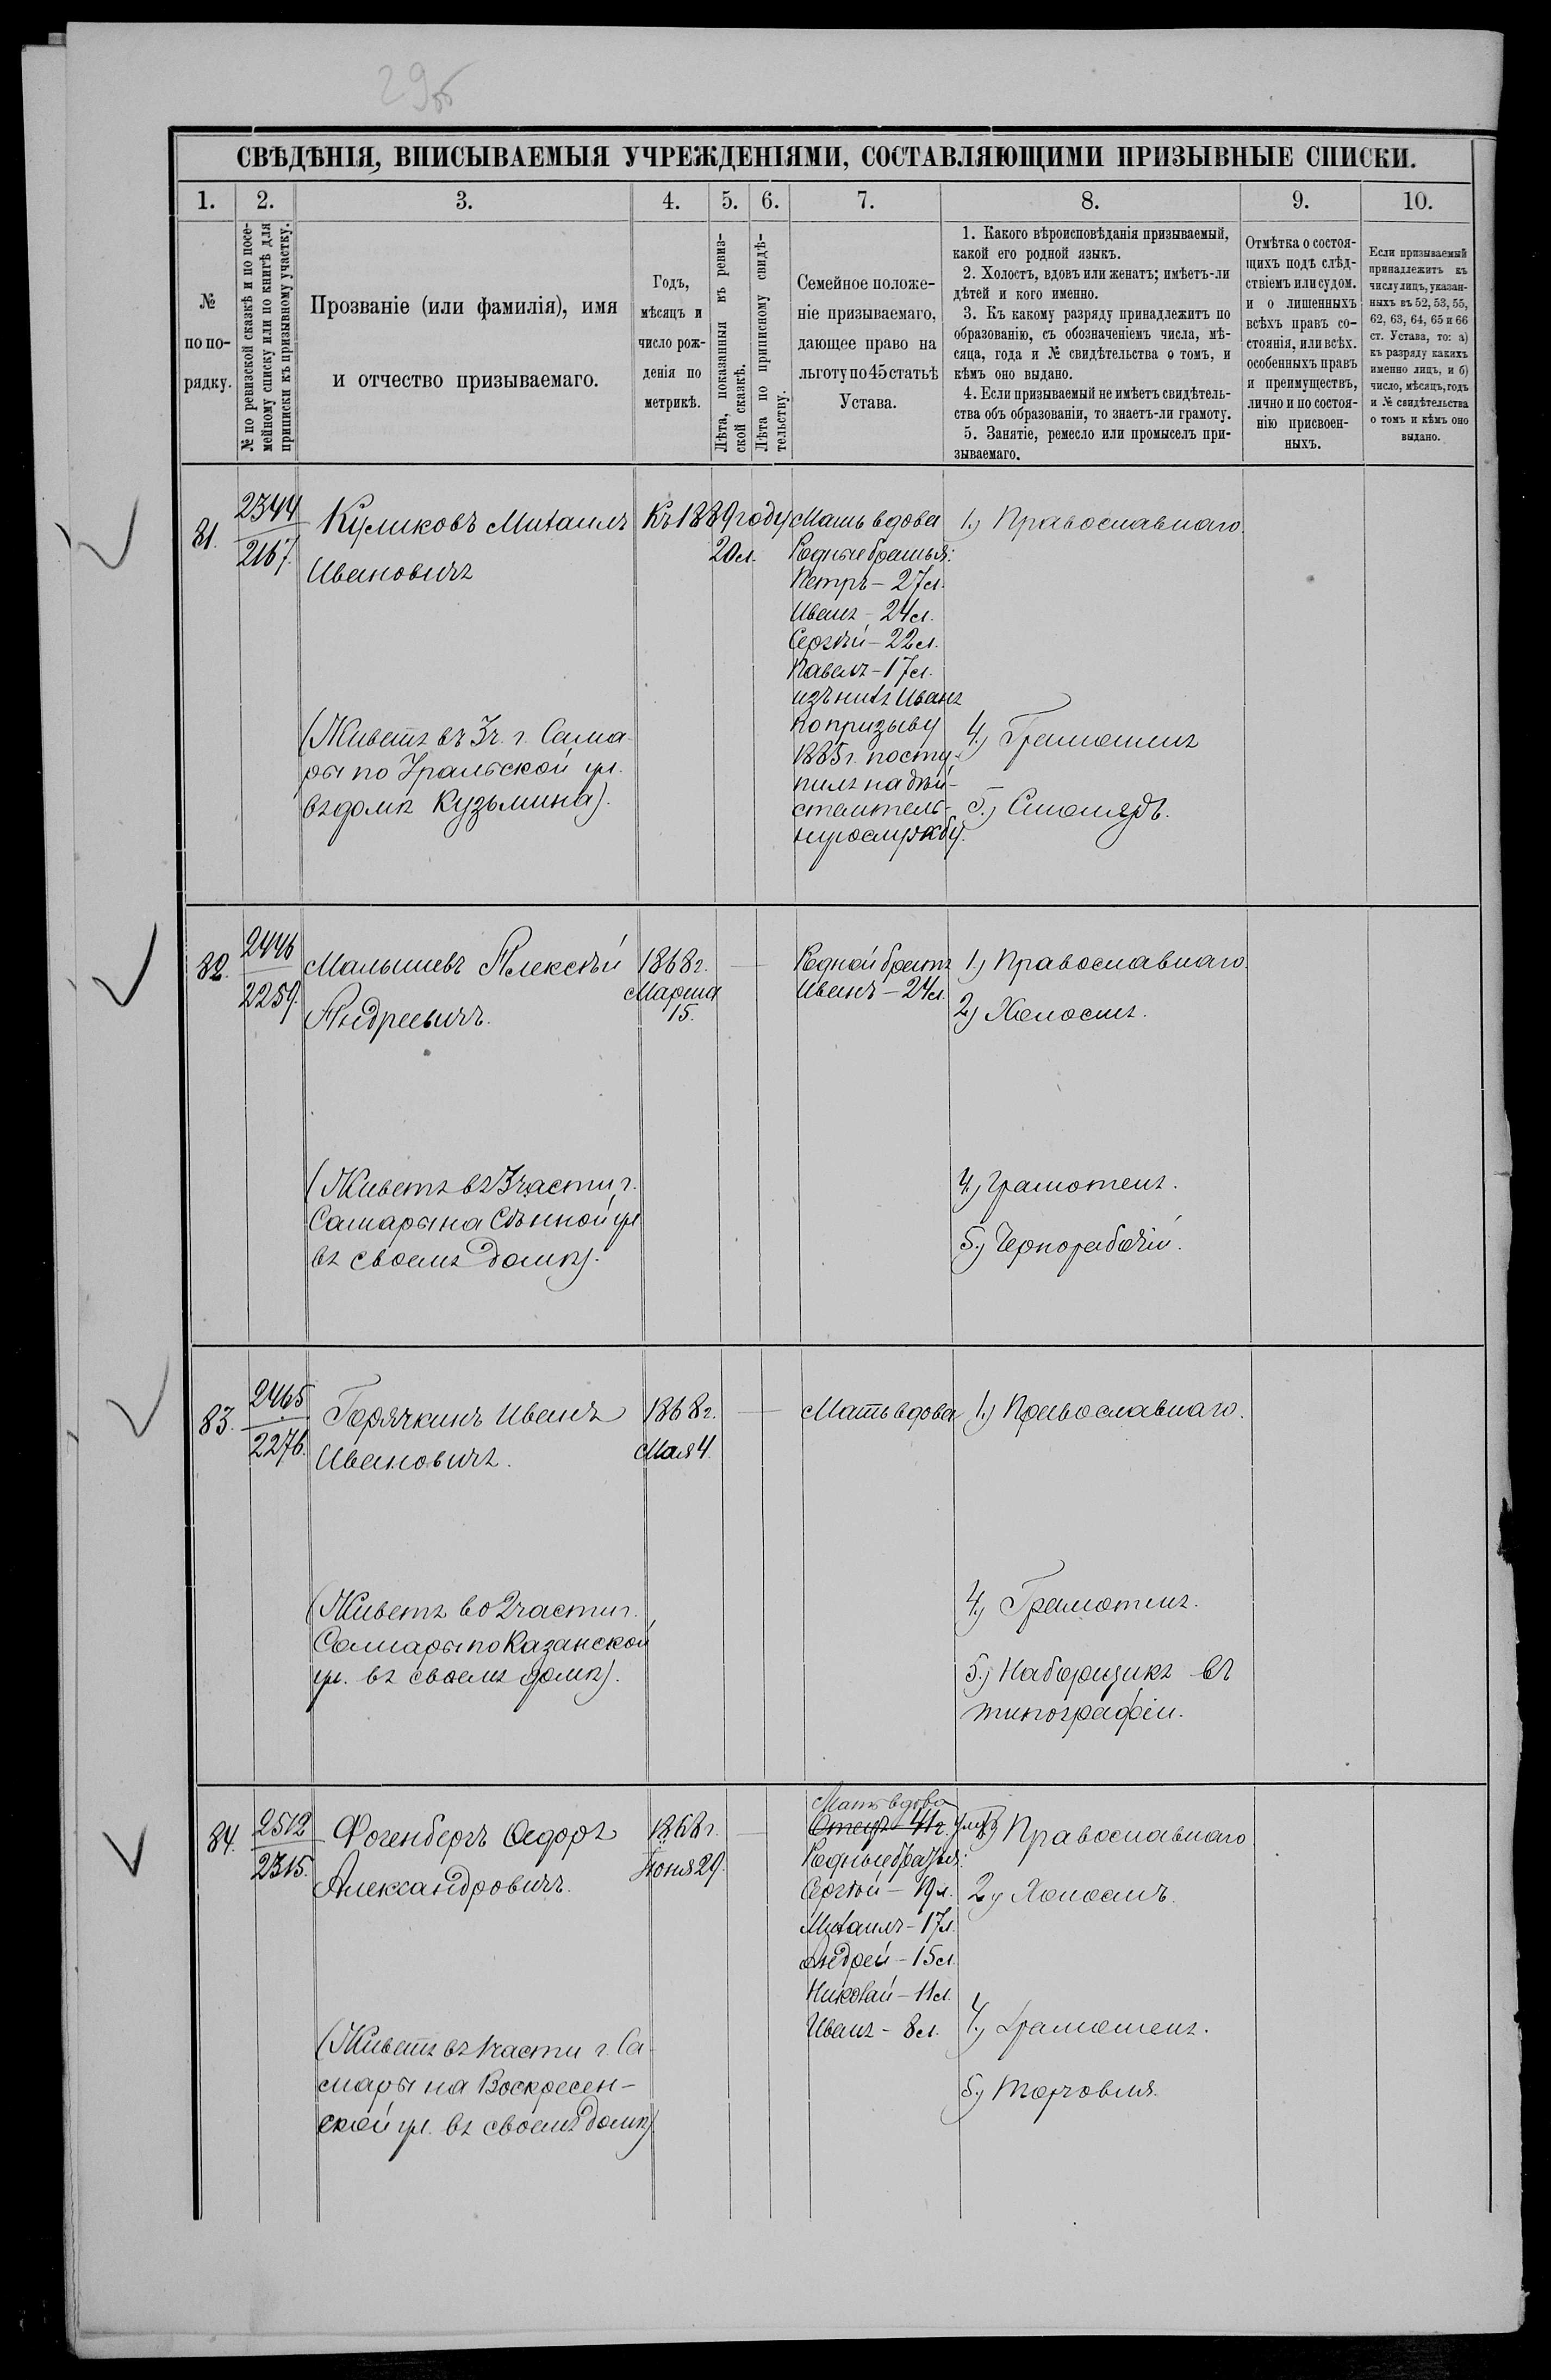 29об
СВѢДѢНІЯ, ВПИСЫВАЕМЫЯ УЧРЕЖДЕНІЯМИ, СОСТАВЛЯЮЩИМИ ПРИЗЫВНЫЕ СПИСКИ.
1. 2. 3. 4. 5. 6. 7. 8. 9. 10.
№
по по-
рядку.
№ по ревизской сказкѣ и по посе-
мейному списку или по книгѣ для
приписки къ призывному участку.
Прозваніе (или фамилія), имя
и отчество призываемаго.
Годъ,
мѣсяцъ и
число рож-
денія по
метрикѣ.
Лѣта, показанныя въ ревиз-
ской сказкѣ.
Лѣта по приписному свидѣ-
тельству.
Семейное положе-
ніе призываемаго,
дающее право на
льготу по 45 статьѣ
Устава.
1. Какого вѣроисповѣданія призываемый,
какой его родной языкъ.
2. Холостъ, вдовъ или женатъ; имѣетъ-ли
дѣтей и кого именно.
3. Къ какому разряду принадлежитъ по
образованію, съ обозначеніемъ числа, мѣ-
сяца, года и № свидѣтельства о томъ, и
кѣмъ оно выдано.
4. Если призываемый не имѣетъ свидѣтель-
ства объ образованіи, то знаетъ-ли грамоту.
5. Занятіе, ремесло или промыселъ при-
зываемаго.
Отмѣтка о состоя-
щихъ подъ слѣд-
ствіемъ или судом.
и о лишенныхъ
всѣхъ правъ со-
стоянія, или всѣх.
особенныхъ правъ
и преимуществъ,
лично и по состоя-
нію присвоен-
ныхъ.
Если призываемый
принадлежитъ къ
числу лицъ, указан-
ныхъ въ 52, 53, 55,
62, 63, 64, 65 и 66
ст. Устава, то: а)
къ разряду какихъ
именно лицъ, и б)
число, мѣсяцъ, годъ
и № свидѣтельства
о томъ и кѣмъ оно
выдано.
81.
2344
2167.
Куликовъ Михаилъ
Ивановичъ
(Живетъ въ 3 ч. г. Сама-
ры по Уральской ул.
въ домѣ Кузьмина).
Къ 1889 году
20 л.
Мать вдова
Родные братья:
Петръ - 27 л.
Иванъ - 24 л.
Сергѣй - 22 л.
Павелъ - 17 л.
изъ нихъ Иванъ
по призыву
1885 г. посту-
пилъ на дѣй-
стаитель-
ную службу.
1.) Православнаго.
4.) Грамотенъ
5.) Столяръ.
82.
2446
2259.
Малышевъ Алексѣй
Андреевичъ.
(Живетъ въ 3 части г.
Самары на Сѣнной ул
въ своемъ домѣ).
1868 г.
Марта
15.
Родной братъ
Иванъ - 24 л.
1.) Православнаго.
2.) Холостъ.
4.) Грамотенъ.
5.) Чернорабочій.
83.
2465
2276.
Горячкинъ Иванъ
Ивановичъ.
(Живетъ во 2 части г.
Самары по Казанской
ул. въ своемъ домѣ).
1868 г.
Мая 4.
Мать вдова
1.) Православнаго.
4.) Грамотенъ.
5.) Наборщикъ въ
типографіи.
84.
2512
2315.
Фогенбергъ Ѳедоръ
Александровичъ.
(Живетъ въ 1 части г. Са-
мары на Воскресен-
ской ул. въ своемъ домѣ)
1868 г.
Іюня 29.
Мать вдова
Отецъ - 41 г.
Родные братья:
Сергѣй - 19 л.
Михаилъ - 17 л.
Андрей - 15 л.
Николай - 11 л.
Иванъ - 8 л.
1.) Православнаго
2.) Холостъ.
4.) Грамотенъ.
5.) Торговля.